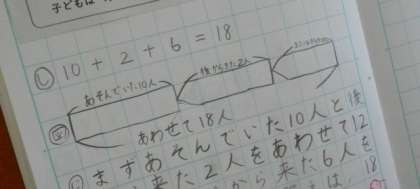 子どもは
し 10 + 2 + 6 = 18
あそんでいた10人
後からきた2人
図
あわせて18人
ますあそんでいた10人と後
来た2人をあわせて12
から来た6人を
は、18